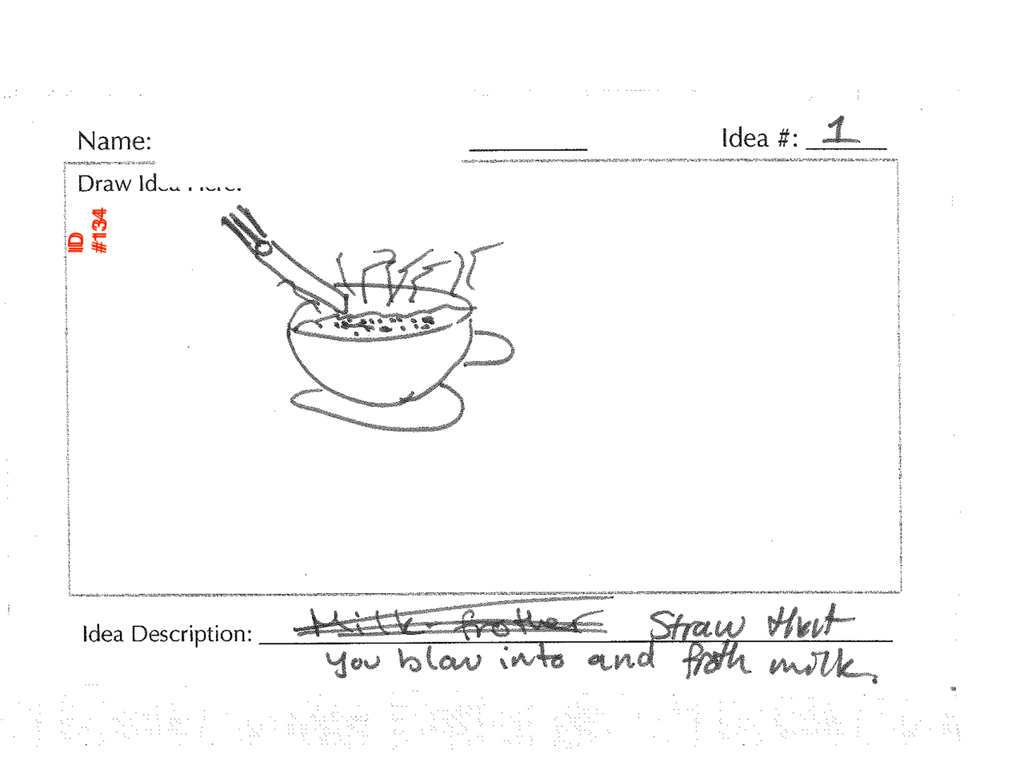 Name:
Idea #: 1
Draw Idea Here:
ID
#134
Idea Description: Milk frother Straw that
you blow into and froth milk.